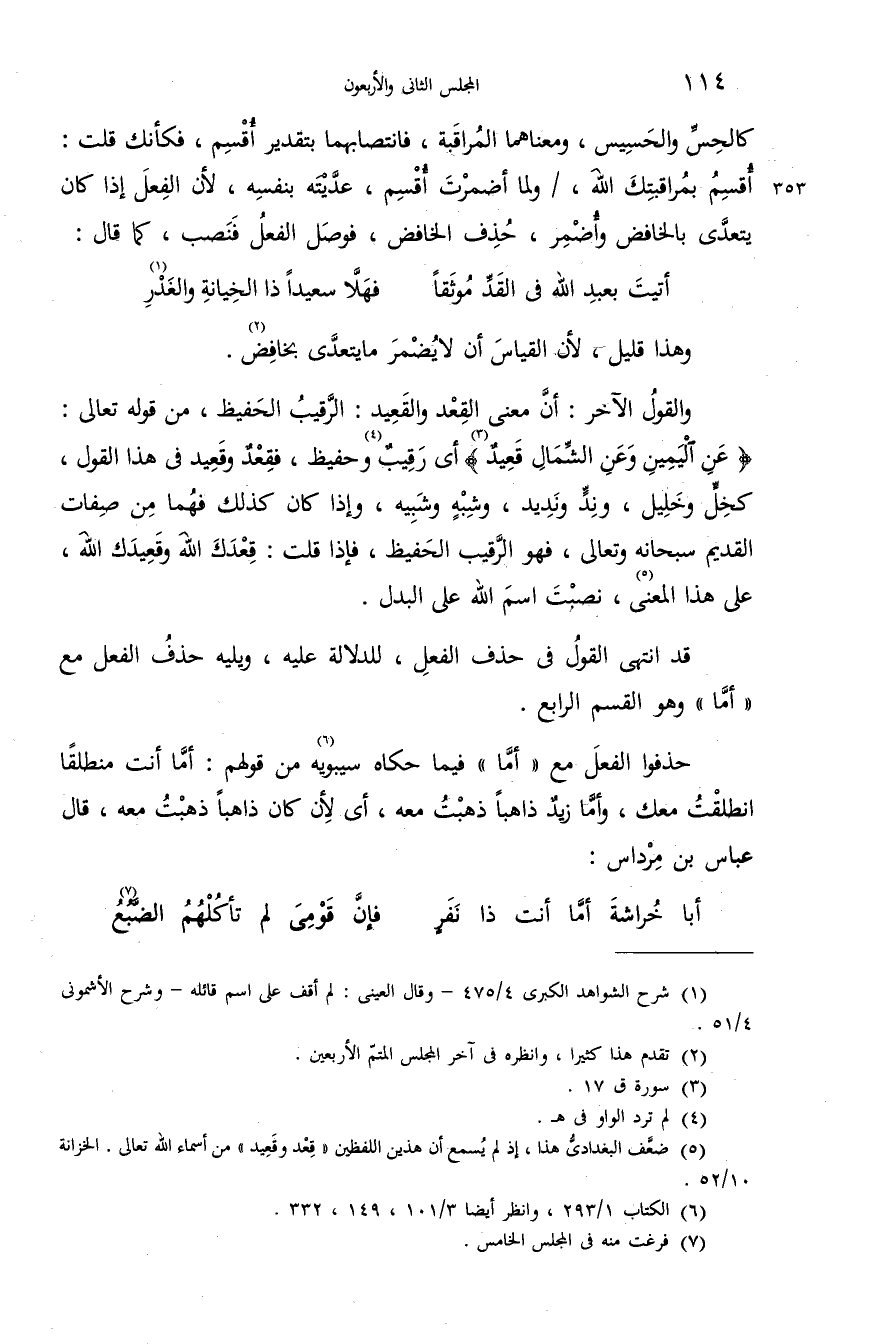 ١١٤ المجلس الثانى والأربعون
كالحِسِّ والحَسِيس ، ومعناهما المُراقَبة ، فانتصابهما بتقدير أُقْسِم ، فكأنك قلت :
٣٥٣ أُقسِمُ بمُراقبتِكَ اللهَ ، / ولما أضمرْتَ أُقْسِم ، عدَّيْتَه بنفسِه ، لأن الفِعلَ إذا كان
يتعدَّى بالخافض وأُضْمِر ، حُذِف الخافض ، فوصَل الفعلُ فَنَصب ، كما قال :
أتيتَ بعبدِ الله فى القَدِّ مُوثَقاً فهَلَّا سعيداً ذا الخِيانةِ والغَدْرِ (١)
وهذا قليل ، لأن القياسَ أن لايُضْمرَ مايتعدَّى بخافِض (٢) .
والقولُ الآخر : أنَّ معنى القِعْد والقَعِيد : الرَّقيبُ الحَفيظ ، من قوله تعالى :
﴿ عَنِ ٱلْيَمِينِ وَعَنِ الشِّمَالِ قَعِيدٌ ﴾ (٣) أى رَقِيبٌ وحفيظ (٤) ، فقِعْدٌ وقَعِيد فى هذا القول ،
كخِلٍّ وخَلِيل ، ونِدٍّ ونَدِيد ، وشِبْهٍ وشَبِيه ، وإذا كان كذلك فهُما مِن صِفات
القديم سبحانه وتعالى ، فهو الرَّقيب الحَفيظ ، فإذا قلت : قِعْدَكَ اللهَ وقَعِيدَك اللهَ ،
على هذا المعنى (٥) ، نصبْتَ اسمَ الله على البدل .
قد انتهى القولُ فى حذف الفعلِ ، للدلالة عليه ، ويليه حذفُ الفعل مع
« أمَّا » وهو القسم الرابع .
حذفوا الفعلَ مع « أمَّا » فيما حكاه سيبويه (٦) من قولهم : أمَّا أنت منطلقًا
انطلقْتُ معك ، وأمَّا زيدٌ ذاهباً ذهبْتُ معه ، أى لِأن كان ذاهباً ذهبْتُ معه ، قال
عباس بن مِرْداس :
أبا خُراشةَ أمَّا أنت ذا نَفَرٍ فإنَّ قَوْمِىَ لم تأكُلْهُمُ الضَّبُعُ (٧)
(١) شرح الشواهد الكبرى ٤٧٥/٤ – وقال العينى : لم أقف على اسم قائله – وشرح الأشمونى
٥١/٤ .
(٢) تقدم هذا كثيرا ، وانظره فى آخر المجلس المتمّ الأربعين .
(٣) سورة ق ١٧ .
(٤) لم ترد الواو فى هـ .
(٥) ضعَّف البغدادىُّ هذا ، إذ لم يُسمع أن هذين اللفظين « قِعْد وقَعِيد » من أسماء الله تعالى . الخزانة
٥٢/١٠ .
(٦) الكتاب ٢٩٣/١ ، وانظر أيضا ١٠١/٣ ، ١٤٩ ، ٣٣٢ .
(٧) فرغت منه فى المجلس الخامس .